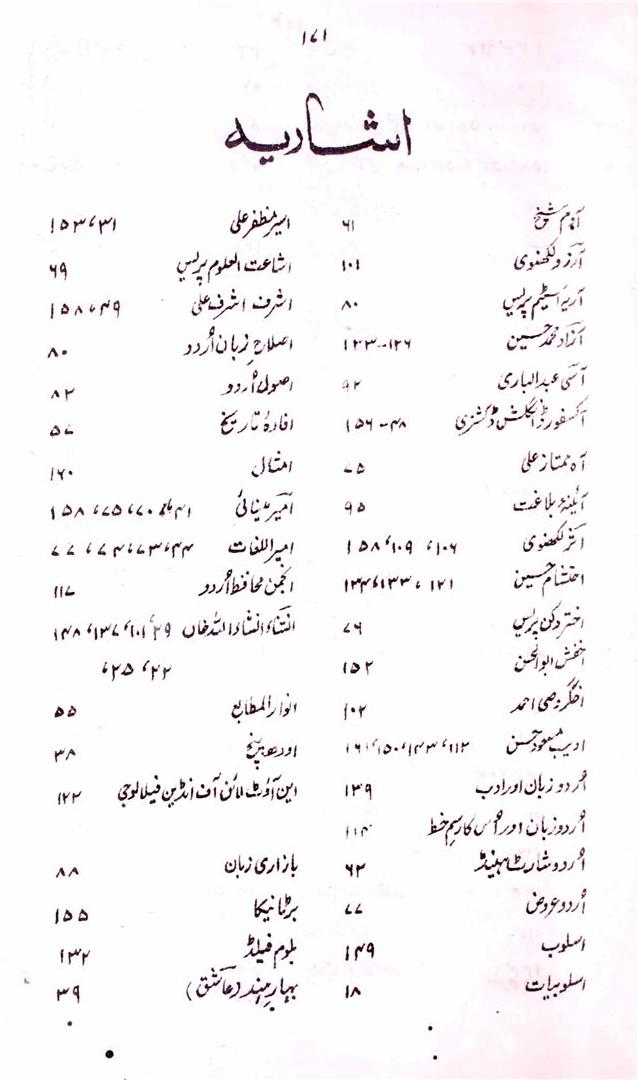 ۱۷۱
اشاریہ
آرام شیخ ۶۱
آرزو لکھنوی ۱۰۱
آریہ اسٹیم پریس ۸۰
آزاد محمد حسین ۱۲۶--۱۲۳
آسی عبدالباری ۹۲
آکسفورڈ انگلش ڈکشنری ۴۸--۱۵۶
آہ ممتاز علی ۷۵
آئینۂ بلاغت ۹۵
اثر لکھنوی ۱۰۶، ۱۰۹، ۱۵۸
احتشام حسین ۱۲۱، ۱۳۳، ۱۳۴
اختر دکن پریس ۷۶
اخفش ابوالحسن ۱۵۲
اخگر زصی احمد ۱۰۲
ادیب مسعود حسن ۱۱۲، ۱۴۳، ۱۵۰، ۱۶۱
اُردو زبان اور ادب ۱۳۹
اُردو زبان اور اُس کا رسمِ خط ۱۱۴
اُردو شارٹ ہینڈ ۶۲
اُردو عروض ۷۷
اسلوب ۱۴۹
اسلوبیات ۱۸
اسیر مظفر علی ۳۱، ۱۵۳
اشاعت العلوم پریس ۶۹
اشرف اشرف علی ۴۹، ۱۵۸
اصلاحِ زبان اُردو ۸۰
اصولِ اُردو ۸۲
افادۂ تاریخ ۵۷
امثال ۱۶۰
امیر مینائی ۷۰، ۷۵، ۱۵۸
امیر اللغات ۴۴، ۷۳، ۷۴، ۷۷
انجمن محافظِ اُردو ۱۱۷
انشاء انشاء اللہ خاں ۲۹، ۱۰۱، ۱۳۷، ۱۴۸
۲۲، ۲۵،
انوار المطابع ۵۵
اودھ پنچ ۳۸
این آؤٹ لائن آف انڈین فیلالوجی ۱۲۲
بازاری زبان ۸۸
برٹانیکا ۱۵۵
بلوم فیلڈ ۱۳۲
بہارِ ہند (عاشق) ۳۹